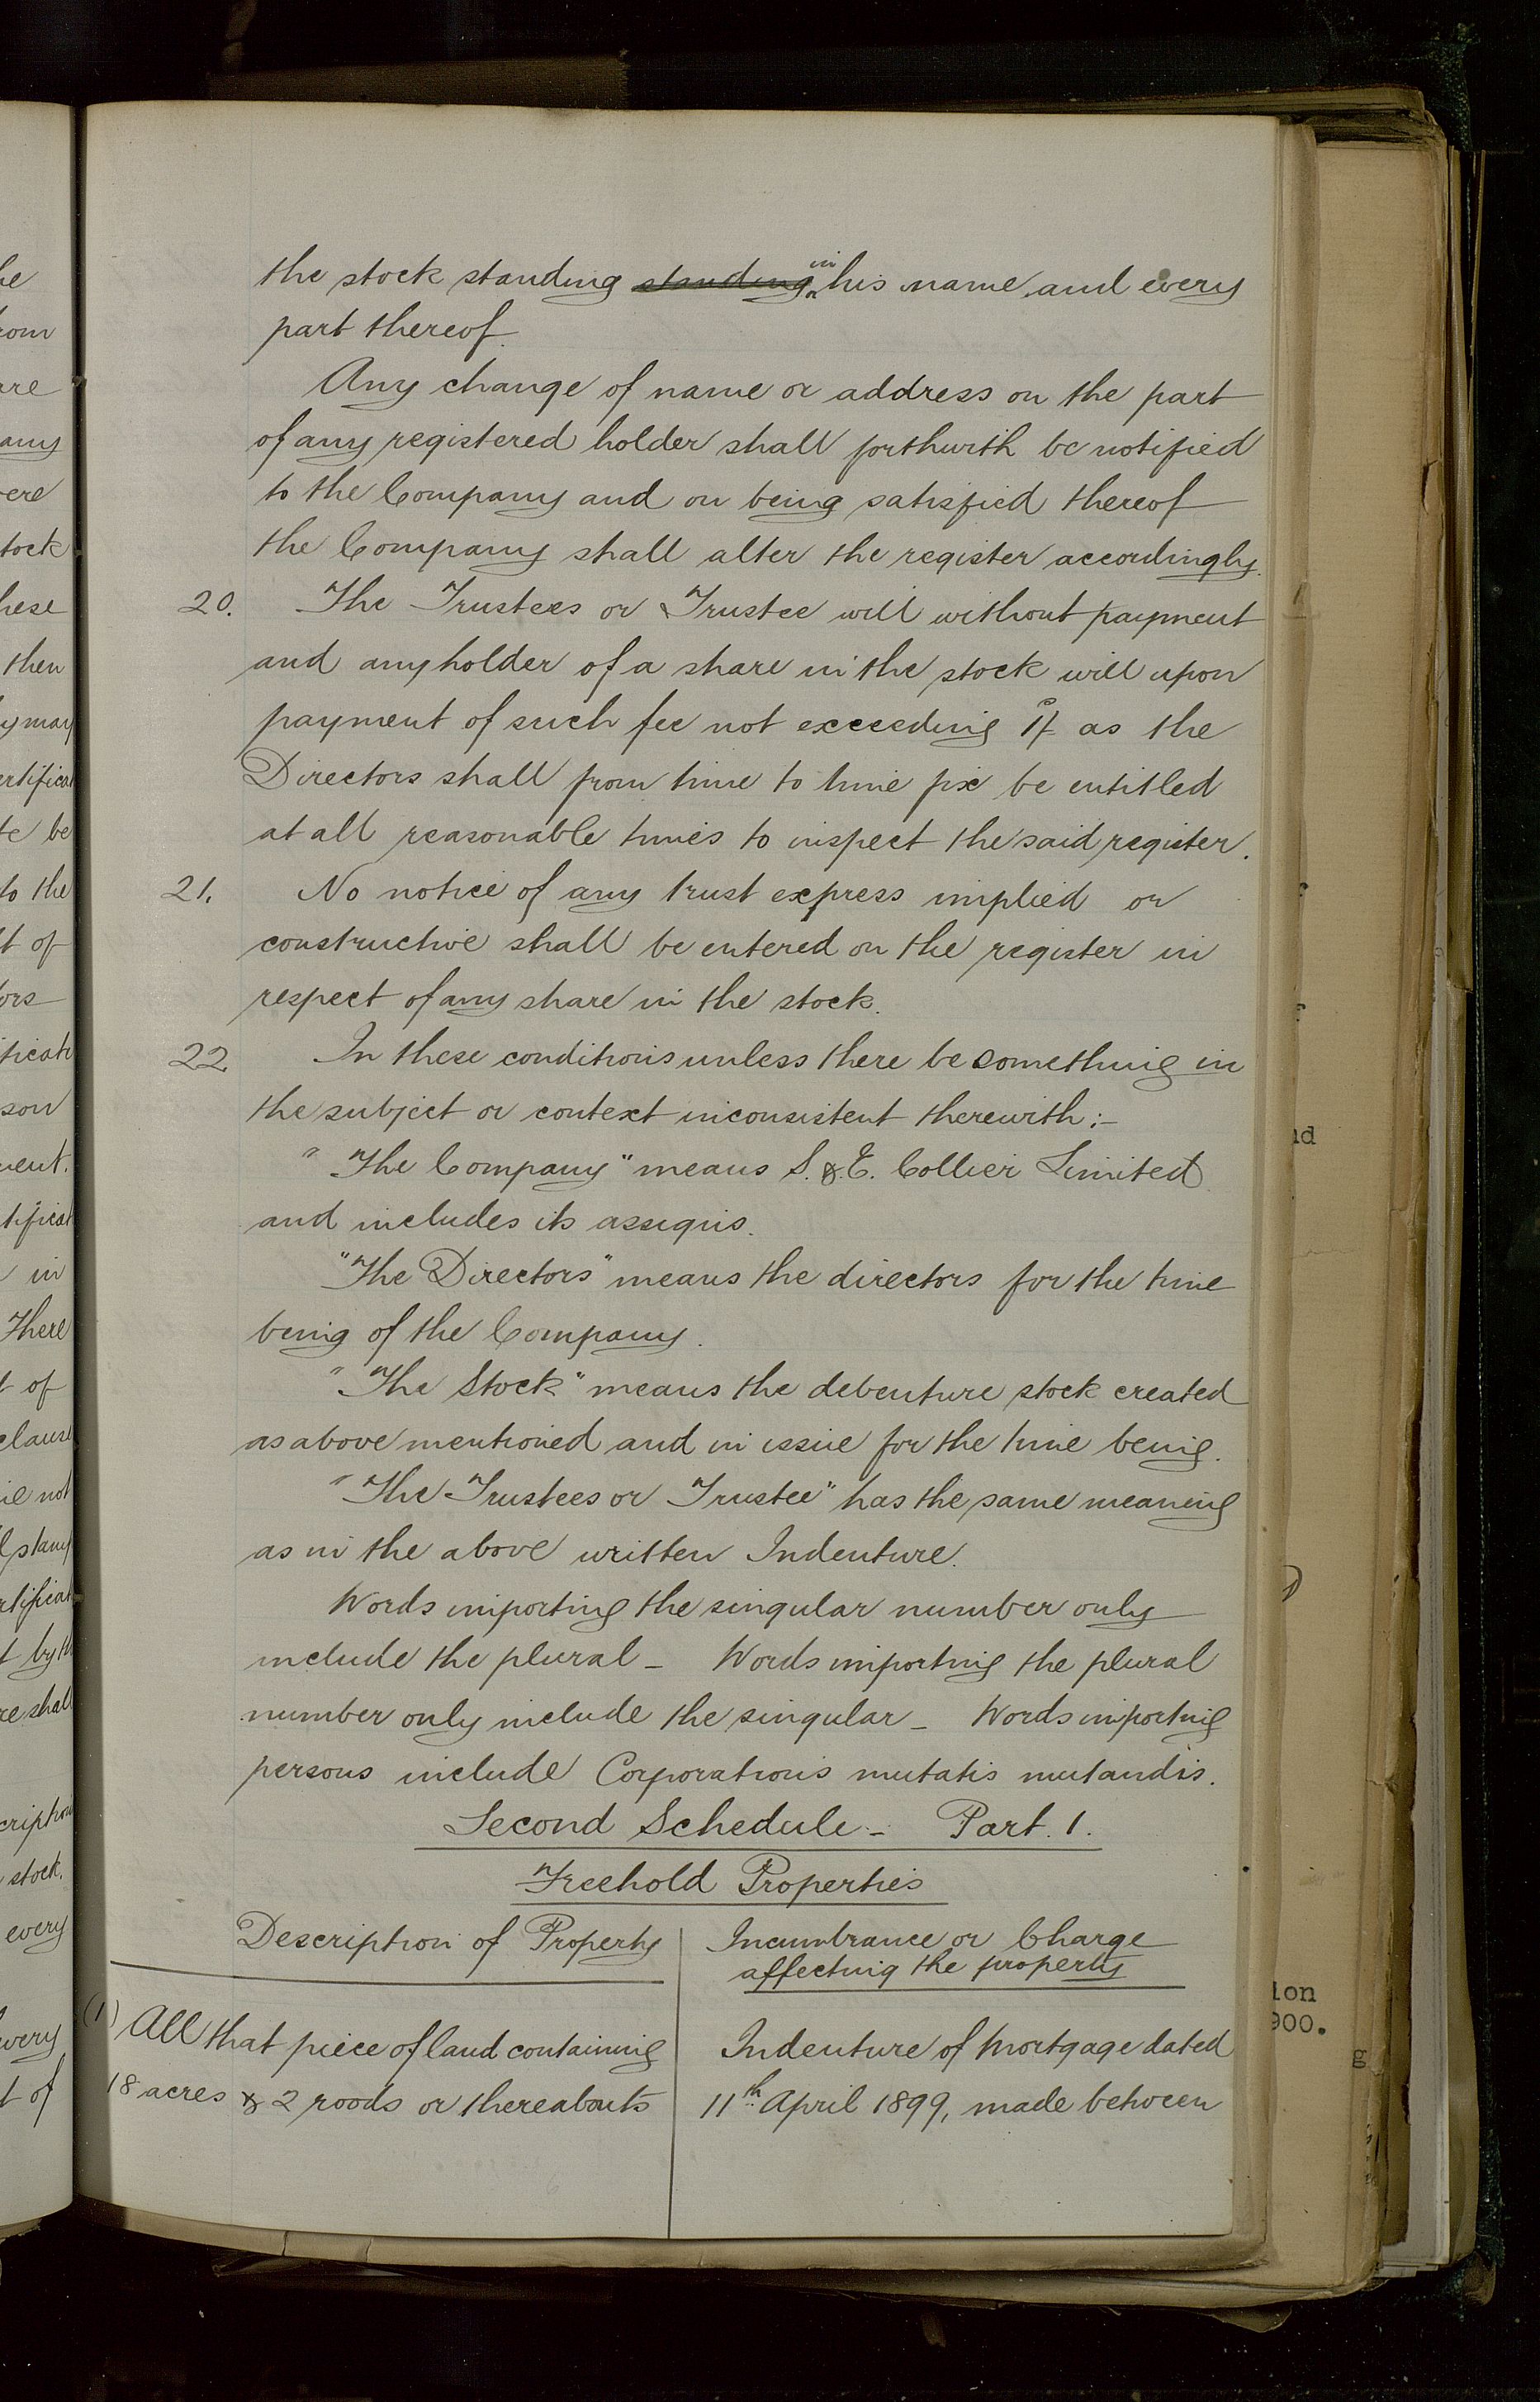 the stock standing standing in his name and every
part thereof.
Any change of name or address on the part
of any registered holder shall forthwith be notified
to the Company and on being satisfied thereof
the Company shall alter the register accordingly.
20. The Trustees or Trustee will without payment
and any holder of a share in the stock will upon
payment of such fee not exceeding 1/- as the
Directors shall from time to time fix be entitled
at all reasonable times to inspect the said register.
21. No notice of any trust express implied or
constructive shall be entered on the register in
respect of any share in the stock.
22. In these conditions unless there be something in
the subject or context inconsistent therewith:-
"The Company" means S. & E. Collier Limited
and includes its assigns.
"The Directors" means the directors for the time
being of the Company.
"The Stock" means the debenture stock created
as above mentioned and in issue for the time being.
"The Trustees or Trustee" has the same meaning
as in the above written Indenture.
Words importing the singular number only
include the plural - Words importing the plural
number only include the singular - Words importing
persons include Corporations mutatis mutandis.
Second Schedule - Part. 1.
Freehold Properties
Description of Property
(1) All that piece of land containing
18 acres & 2 roods or thereabouts
Incumbrance or Charge
affecting the property
Indenture of Mortgage dated
11th April 1899, made between